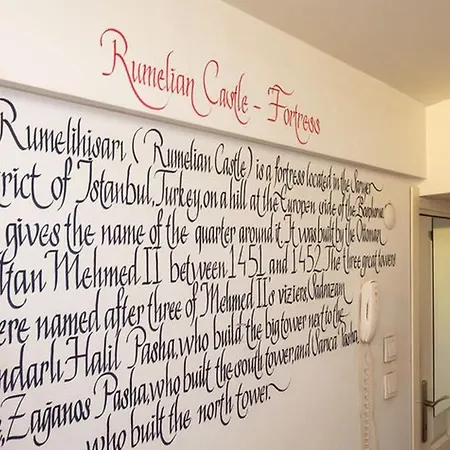 Rumelian Castle - Fortress
Rumelihisarı (Rumelian Castle) is a fortress located in the Sarıyer
rict of Istanbul, Turkey, on a hill at the Europen side of the Bosphorus
gives the name of the quarter around it. It was built by the Ottoman
ltan Mehmed II between 1451 and 1452. The three great towers
ere named after three of Mehmed II's viziers, Sadrazam
ndarlı Halil Pasha, who build the big tower next to the
e, Zağanos Pasha, who built the south tower, and Sarıca Pasha,
who built the north tower.